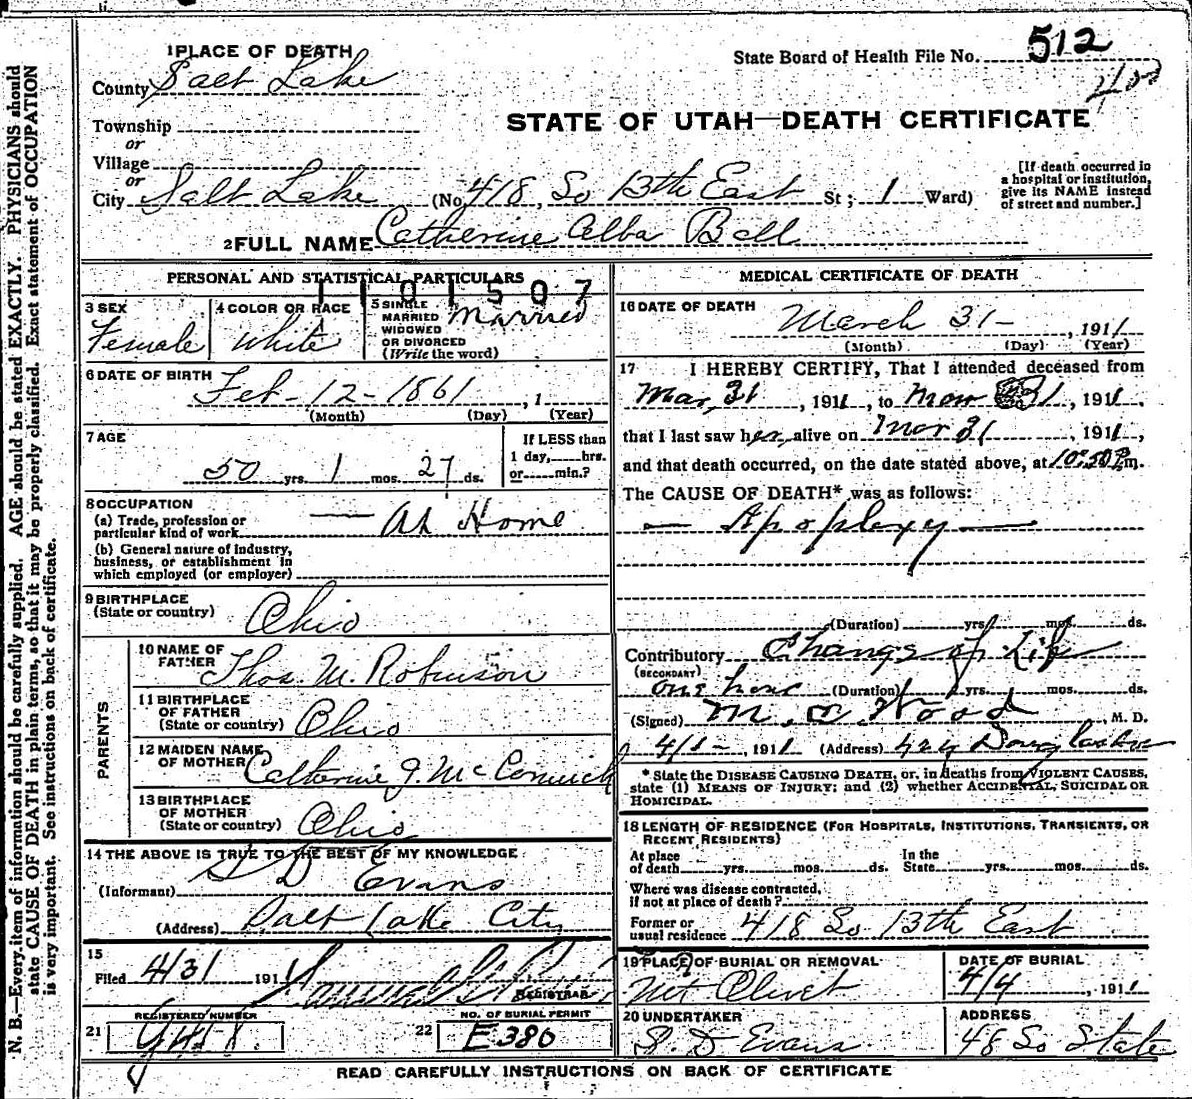 1 PLACE OF DEATH
County Salt Lake
State Board of Health File No. 512
400
Township
or
Village
or
STATE OF UTAH—DEATH CERTIFICATE
City Salt Lake (No. 418, So 13th East St; 1 Ward)
[If death occurred in a hospital or institution, give its NAME instead of street and number.]
2 FULL NAME Catherine Alba Ball
PERSONAL AND STATISTICAL PARTICULARS
1101507
3 SEX
Female
4 COLOR OR RACE
White
5 SINGLE
MARRIED
WIDOWED
OR DIVORCED
(Write the word)
Married
6 DATE OF BIRTH
Feb - 12 - 1861, 1
(Month) (Day) (Year)
7 AGE
50 yrs. 1 mos. 27 ds.
If LESS than
1 day,.....hrs.
or.....min.?
8 OCCUPATION
(a) Trade, profession or
particular kind of work — At Home
(b) General nature of industry,
business, or establishment in
which employed (or employer)
9 BIRTHPLACE
(State or country) Ohio
PARENTS
10 NAME OF
FATHER Thos. M. Robinson
11 BIRTHPLACE
OF FATHER
(State or country) Ohio
12 MAIDEN NAME
OF MOTHER Catherine J. McCormick
13 BIRTHPLACE
OF MOTHER
(State or country) Ohio
14 THE ABOVE IS TRUE TO THE BEST OF MY KNOWLEDGE
(Informant) S D Evans
(Address) Salt Lake City
15
Filed 4/3/ 1911
REGISTRAR
REGISTERED NUMBER
21
22
NO. OF BURIAL PERMIT
E 386
MEDICAL CERTIFICATE OF DEATH
16 DATE OF DEATH
March 31 - , 1911
(Month) (Day) (Year)
17 I HEREBY CERTIFY, That I attended deceased from
Mar, 31, 1911, to Mar 31, 1911,
that I last saw her alive on Mar 31, 1911,
and that death occurred, on the date stated above, at 10:50 P.m.
The CAUSE OF DEATH* was as follows:
— Apoplexy —
(Duration) yrs. mos. ds.
Contributory Change of Life
(SECONDARY)
one hour (Duration) yrs. mos. ds.
(Signed) Wood, M. D.
4/1 - , 1911 (Address)
* State the DISEASE CAUSING DEATH, or, in deaths from VIOLENT CAUSES,
state (1) MEANS OF INJURY; and (2) whether ACCIDENTAL, SUICIDAL OR
HOMICIDAL.
18 LENGTH OF RESIDENCE (FOR HOSPITALS, INSTITUTIONS, TRANSIENTS, OR
RECENT RESIDENTS)
At place
of death.......yrs.......mos.......ds.
In the
State.......yrs.......mos.......ds.
Where was disease contracted,
if not at place of death?
Former or
usual residence 418 So 13th East
19 PLACE OF BURIAL OR REMOVAL
Mt Olivet
DATE OF BURIAL
4/4, 1911
20 UNDERTAKER
S. D Evans
ADDRESS
48 So State
READ CAREFULLY INSTRUCTIONS ON BACK OF CERTIFICATE
N. B.—Every item of information should be carefully supplied. AGE should be stated EXACTLY. PHYSICIANS should
state CAUSE OF DEATH in plain terms, so that it may be properly classified. Exact statement of OCCUPATION
is very important. See instructions on back of certificate.